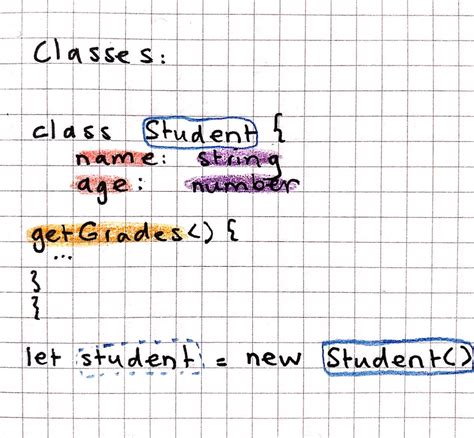 Classes:
class Student {
name: string
age: number
getGrades() {
...
}
{
let student = new Student()